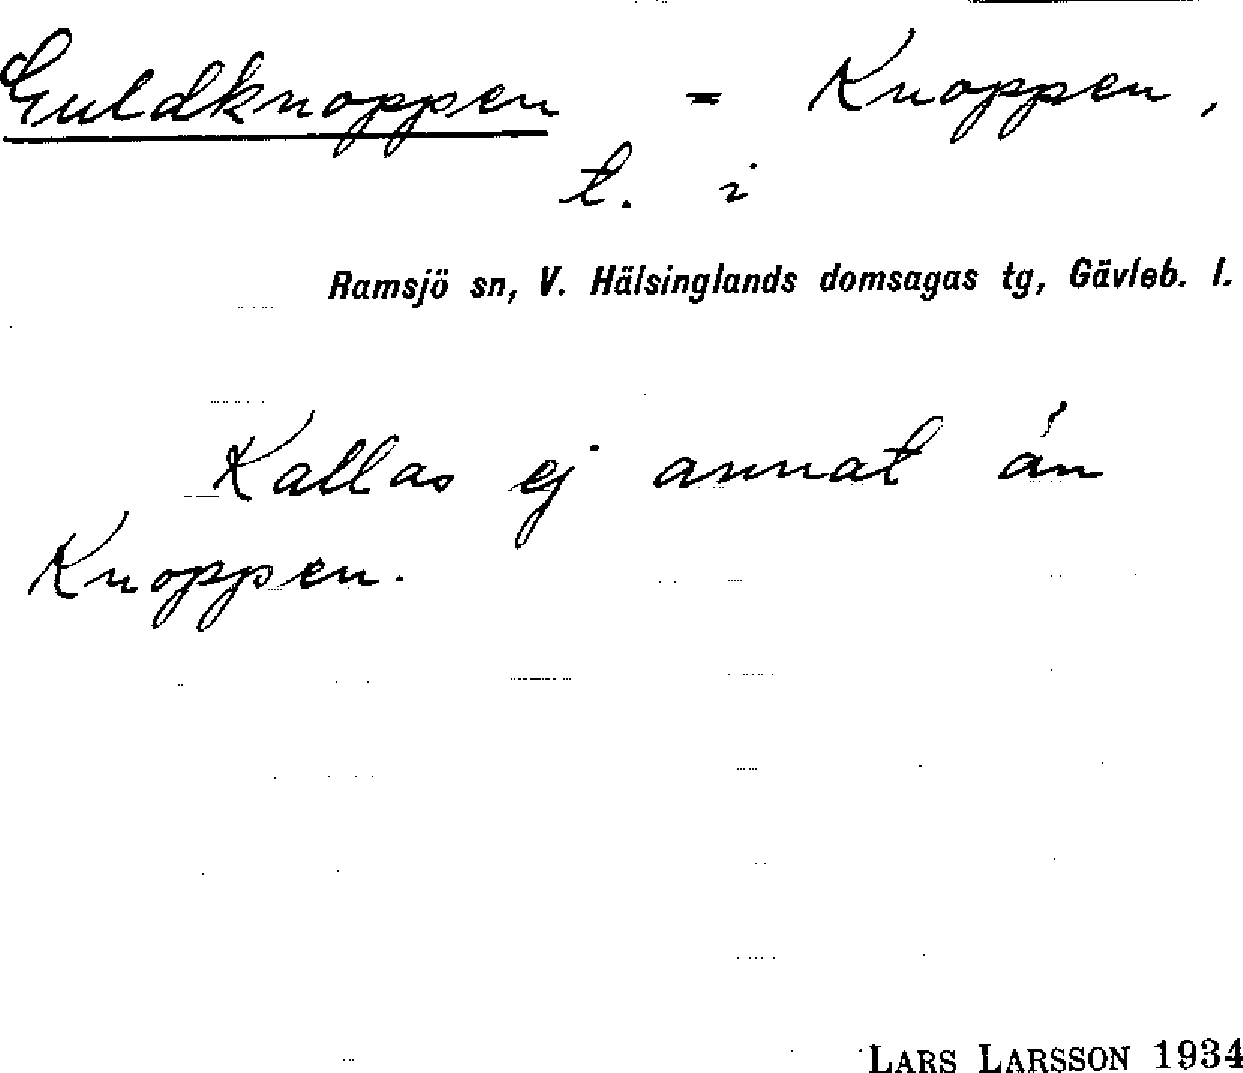 Guldknoppen = Knoppen,
t. i
Ramsjö sn, V. Hälsinglands domsagas tg, Gävleb. l.
Kallas ej annat än
Knoppen.
LARS LARSSON 1934